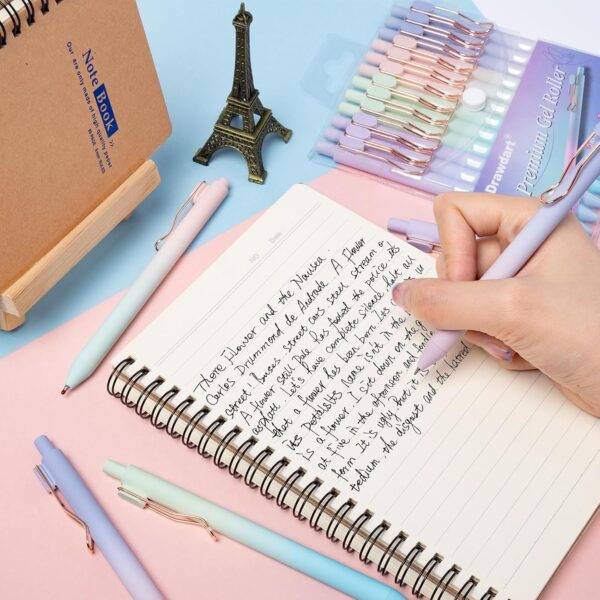 Note Book
Our are only made of high quality paper
Drawdart®
Premium Gel Roller
NO
Date
There Flower and the Nausea.
Carlos Drummond de Andrade. A Flower
street! buses street cars steel stream o
A flower still pale has fooled the police its
asphalt. Let's have complete silence halt all
that a flower has been born. Its
Its Petals Its Name isn't in the
Is a flower. I sit down on the g
at five in the afternoon and
form. It is ugly But it is
tedium. the disgust and the